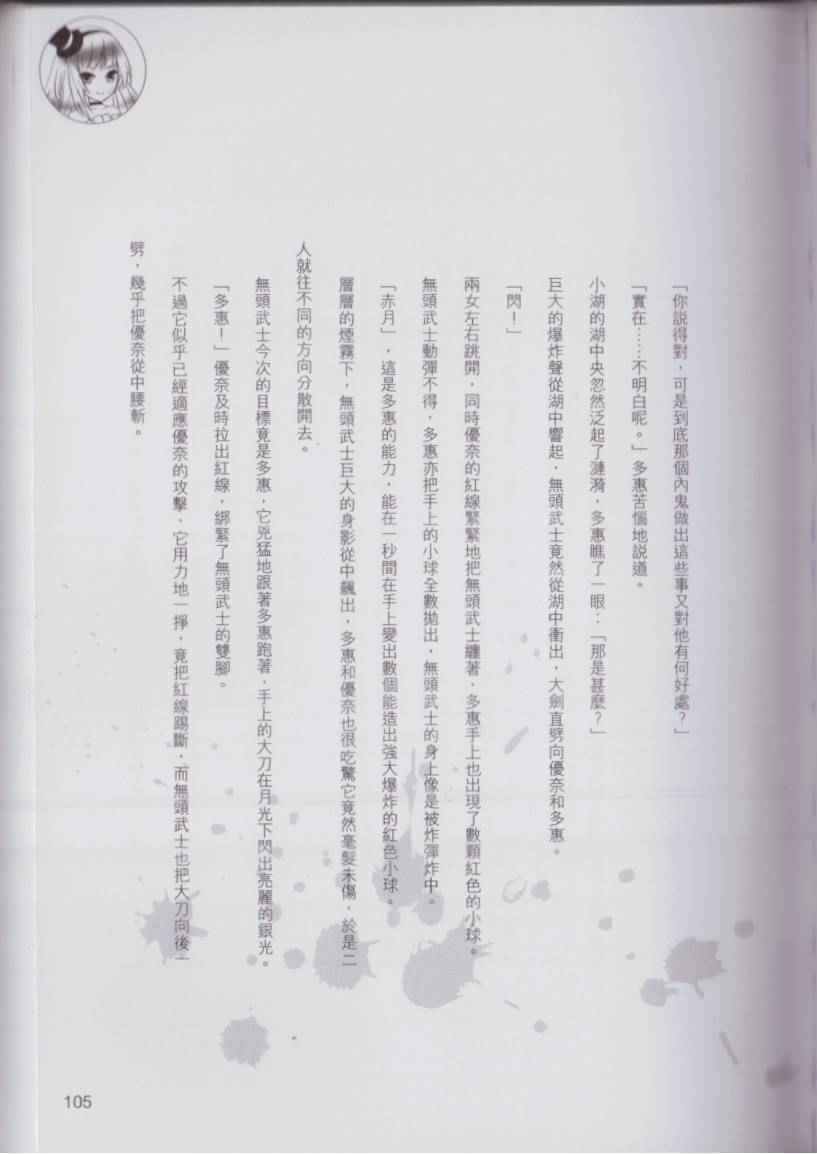 「你說得對，可是到底那個內鬼做出這些事又對他有何好處？」
「實在……不明白呢。」多惠苦惱地說道。
小湖的湖中央忽然泛起了漣漪，多惠瞧了一眼：「那是甚麼？」
巨大的爆炸聲從湖中響起，無頭武士竟然從湖中衝出，大劍直劈向優奈和多惠。
「閃！」
兩女左右跳開，同時優奈的紅線緊緊地把無頭武士纏著，多惠手上也出現了數顆紅色的小球。
無頭武士動彈不得，多惠亦把手上的小球全數拋出，無頭武士的身上像是被炸彈炸中。
「赤月」，這是多惠的能力，能在一秒間在手上變出數個能造出強大爆炸的紅色小球。
層層的煙霧下，無頭武士巨大的身影從中飆出，多惠和優奈也很吃驚它竟然毫髮未傷，於是二
人就往不同的方向分散開去。
無頭武士今次的目標竟是多惠，它兇猛地跟著多惠跑著，手上的大刀在月光下閃出亮麗的銀光。
「多惠！」優奈及時拉出紅線，綁緊了無頭武士的雙腳。
不過它似乎已經適應優奈的攻擊，它用力地一掙，竟把紅線踢斷，而無頭武士也把大刀向後一
劈，幾乎把優奈從中腰斬。
105